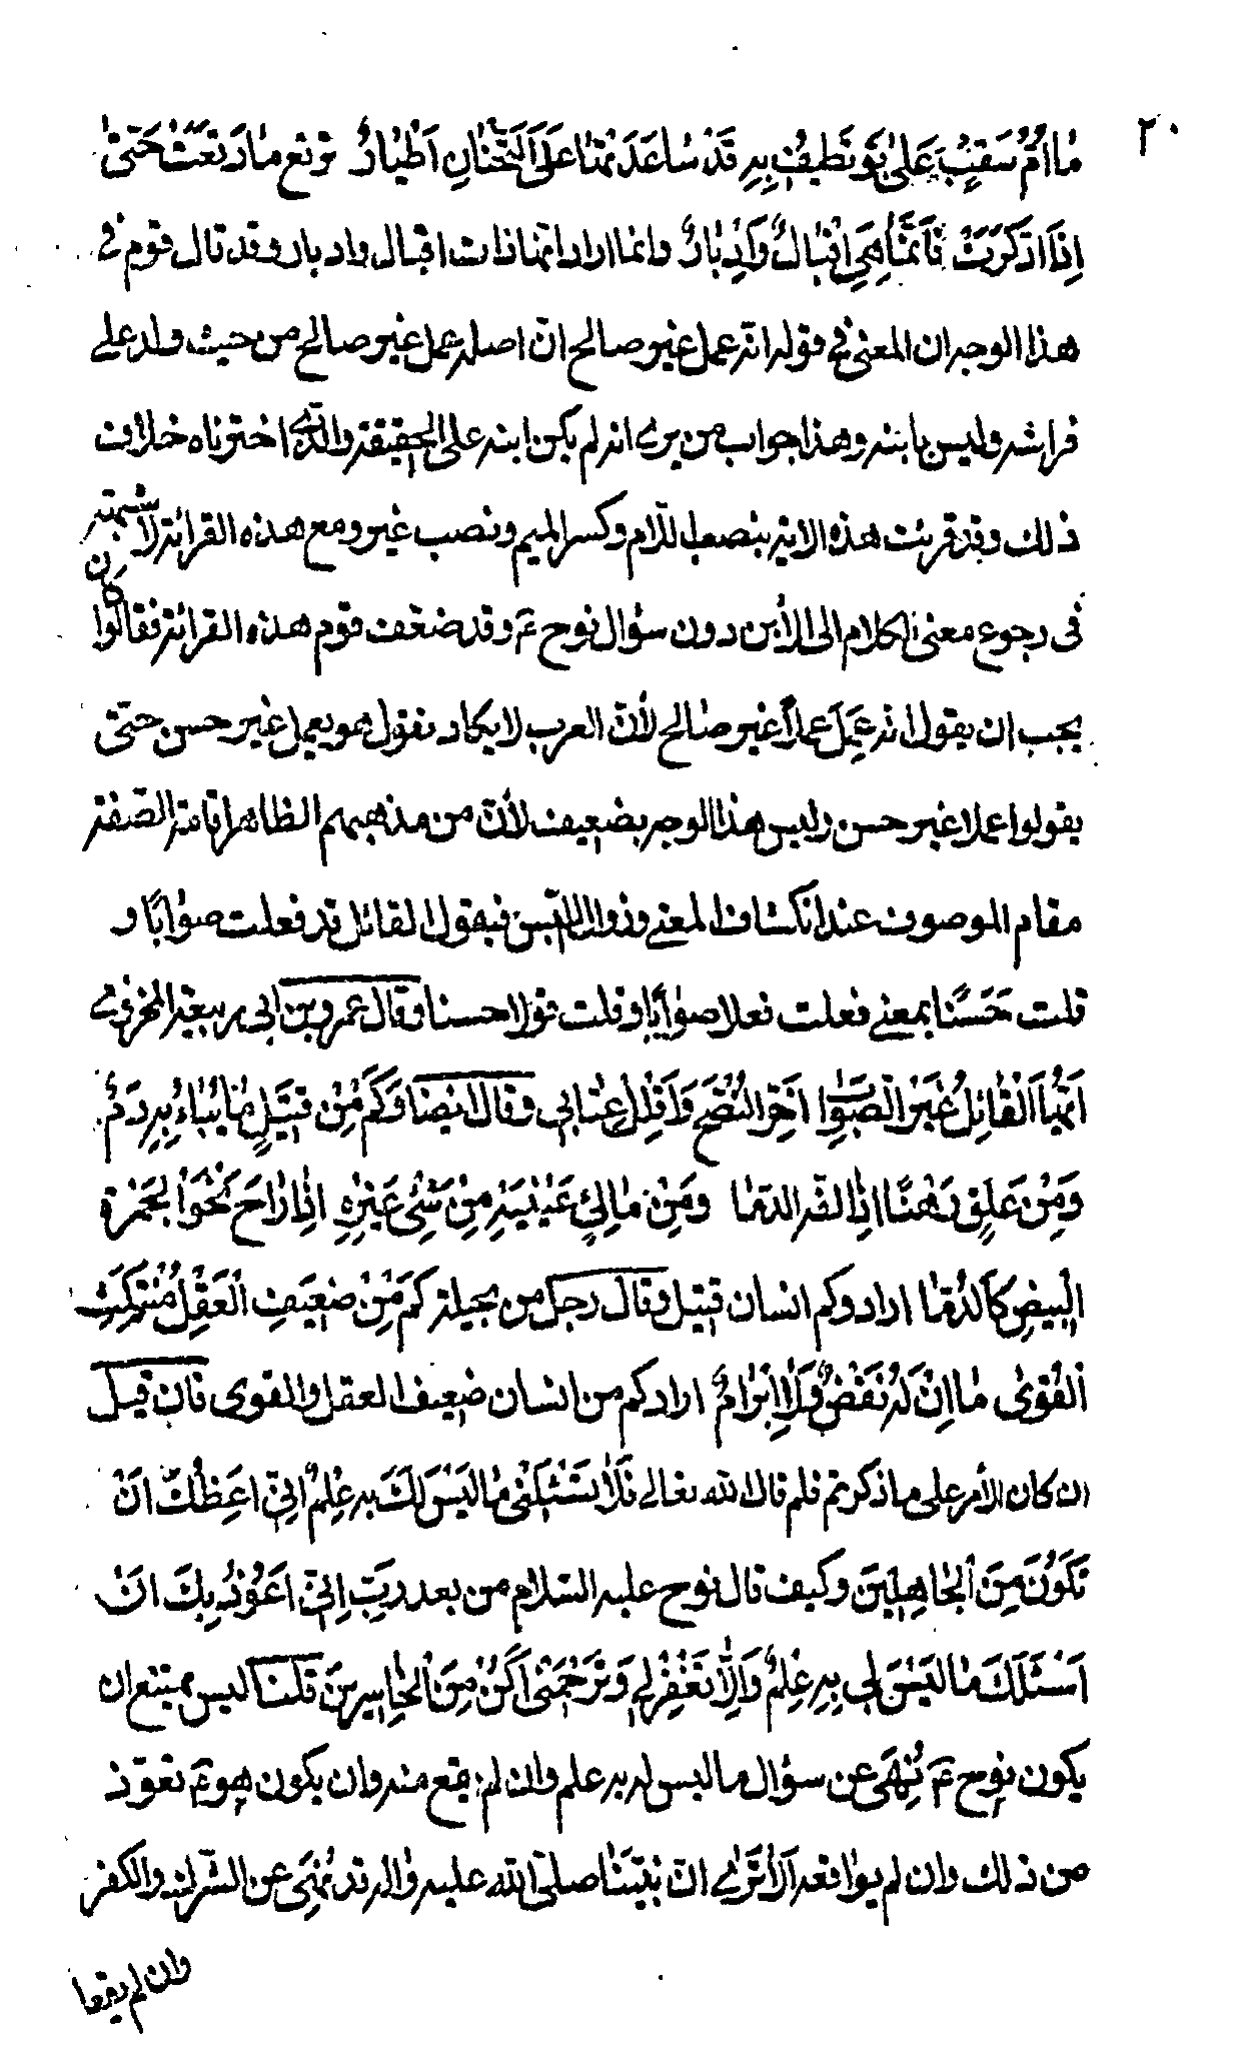 ٢٠
مٰا اُمُّ سَقْبٍ عَلىٰ بَوٍّ تَطِيفُ بِهِ قَدْ سٰاعَدَتْهٰا عَلَى التَّحْنٰانِ اَظْئٰارُ ترتع ما رَتَعَتْ حَتّىٰ
اِذٰا ادَّكَرَتْ فَاِنَّمٰا هِيَ اِقْبٰالٌ وَاَدْبٰارٌ وانما اراد انها ذات اقبال وادبار وقد قال قوم فى
هذا الوجه ان المعنى فى قوله انه عمل غير صالح انّ اصله عمل غير صالح من حيث ولد على
فراشه وليس بابنه وهذا جواب من يرى انه لم يكن ابنه على الحقيقة والّذى اخترناه خلاف
ذلك وقد قرئت هذه الاية بنصب اللّام وكسر الميم ونصب غير ومع هذه القرائة لا شبهة
فى رجوع معنى الكلام الى الأبن دون سؤال نوح ع وقد ضعّف قوم هذه القرائة فقالوا كان
يجب ان يقول انه عَمِلَ عملاً غير صٰالح لأنّ العرب لا يكاد تقول هو يعمل غير حسن حتّى
يقولوا عملا غير حسن وليس هذا الوجه بضعيف لأنّ من مذهبهم الظاهر اقامة الصّفة
مقام الموصوف عند انكشاف المعنى وزوال اللبس فيقول القائل قد فعلت صوٰابًا و
قلت حَسَنًا بمعنى فعلت فعلا صوٰابًا وقلت قولا حسنا وقال عمرو بن ابى ربيعة المخزومى
اَيُّهٰا الْقٰائِلُ غَيْرَ الصَّوٰابِ اَخِّرِ النُّصْحَ وَاَقْلِلْ عِتٰابى وقال ايضا وَكَمْ مِنْ قَتيلٍ مٰا يُبٰاءُ بِهِ دَمٌ
وَمِنْ غَلِقٍ رَهْنًا اِذٰا لفّه الدمٰا ومَنْ مٰالِئٍ عَيْنَيْهِ مِنْ شَئْ غَيْرِهِ اِذٰا رٰاحَ نَحْوَ الْجَمْرَةِ
الْبِيضُ كَالدُّمٰا اراد وكم انسان قتيل وقال رجل من بجيلة كَمْ مِنْ ضَعِيفِ الْعَقْلِ مُنْتَكِثِ
الْقُوىٰ مٰا اِنْ لَهُ نَقْضٌ وَلاٰ اِبْرٰامٌ اراد كم من انسان ضعيف العقل والقوى فان قيل
ان كان الأمر على ما ذكرتم فلم قال الله تعالى فَلاٰ تَسْئَلْنى مٰا لَيْسَ لَكَ بِهِ عِلْمٌ اِنّى اَعِظُكَ اَنْ
تَكُونَ مِنَ الْجٰاهِلِينَ وكيف قال نوح عليه السّلام من بعد رَبِّ اِنّى اَعُوذُ بِكَ اَنْ
اَسْئَلَكَ مٰا لَيْسَ لى بِهِ عِلْمٌ وَاِلاّٰ تَغْفِرْ لى وَتَرْحَمْنى اَكُنْ مِنَ الْخٰاسِرينَ قلنا ليس يمتنع ان
يكون نوح ع نُهِىَ عن سؤال ما ليس له به علم وان لم يقع منه وان يكون هو ع تعوّذ
من ذلك وان لم يوٰاقعه اَلاٰ تَرٰى انّ نبيّنا صلّى الله عليه واله قد نُهِىَ عن الشّرك والكفر
وان لم يقعا